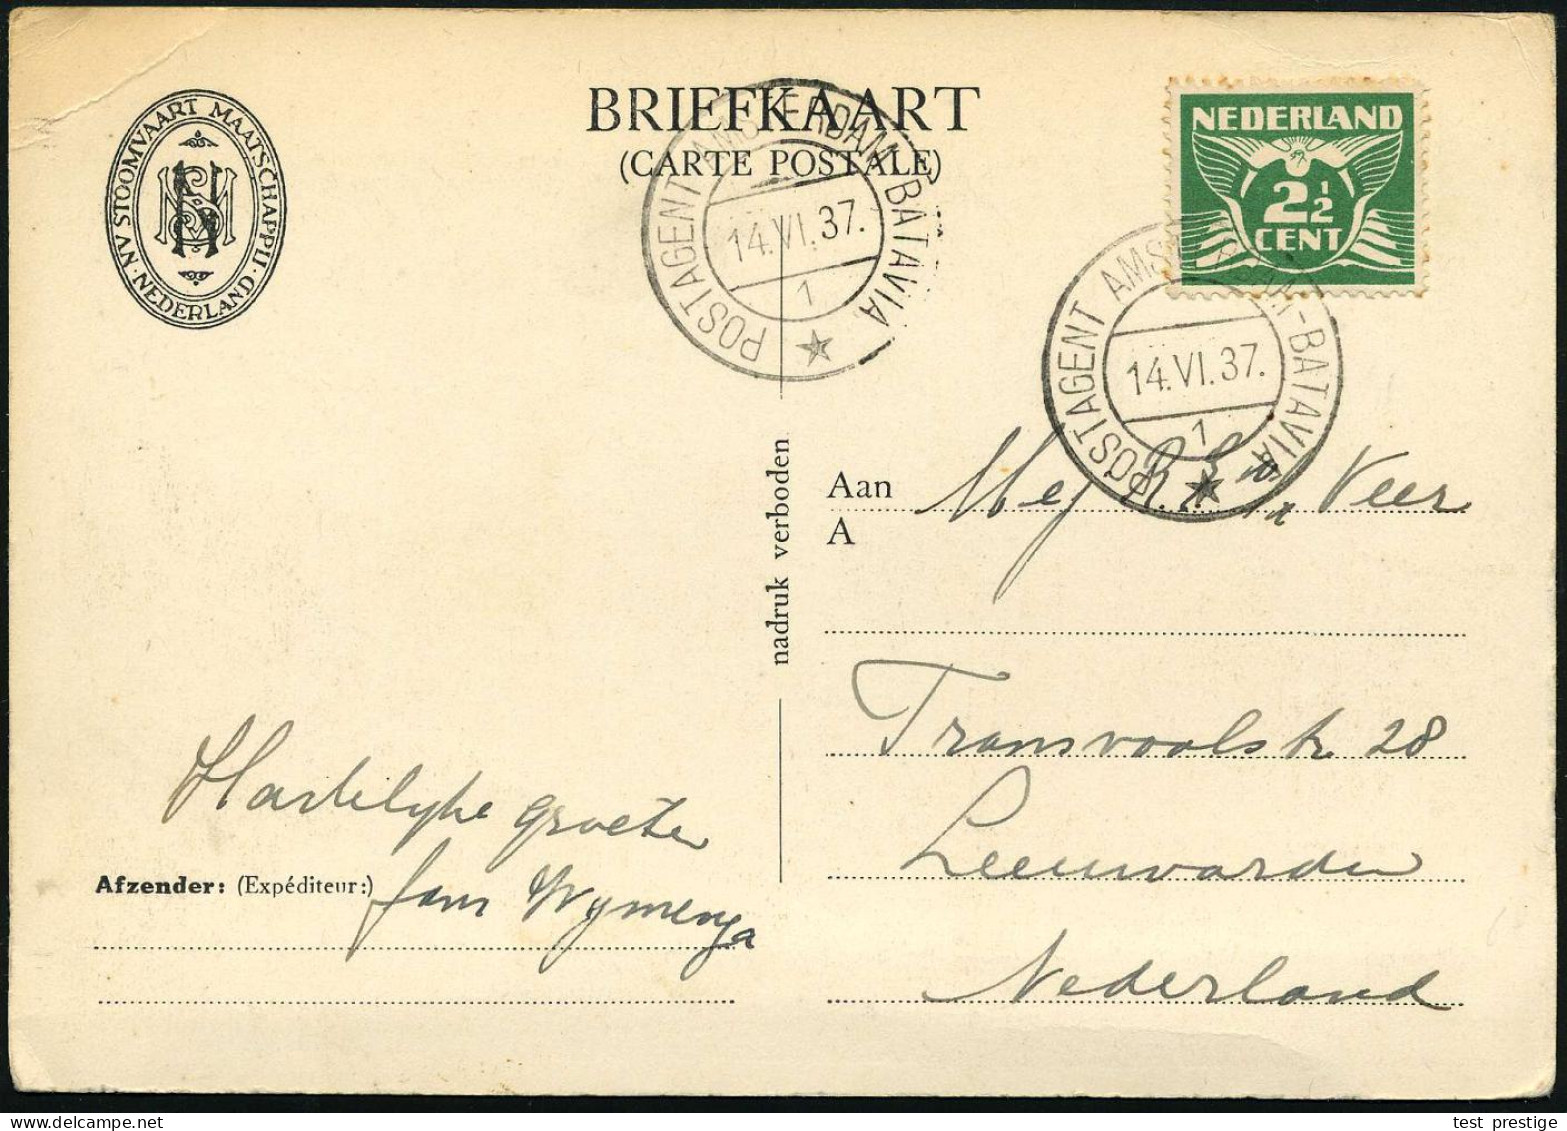 BRIEFKAART
(CARTE POSTALE)
NV STOOMVAART MAATSCHAPPIJ · NEDERLAND ·
NEDERLAND
2½
CENT
POSTAGENT AMSTERDAM-BATAVIA
14.VI.37.
1
POSTAGENT AMSTERDAM-BATAVIA
14.VI.37.
1
nadruk verboden
Aan Mej R. v/d Veer
A
Transvaalstr 28
Leeuwarden
Nederland
Hartelijke groeten
Afzender: (Expéditeur:) Jam Wymenga
test prestige